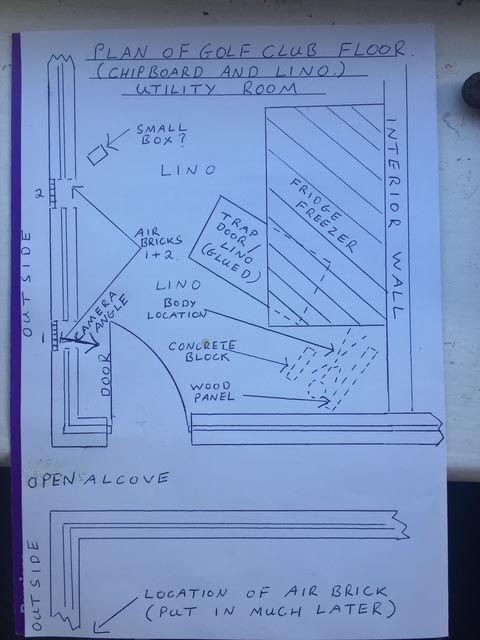 PLAN OF GOLF CLUB FLOOR.
(CHIPBOARD AND LINO.)
UTILITY ROOM
SMALL
BOX?
LINO
INTERIOR WALL
2
OUTSIDE
AIR
BRICKS
1+2.
TRAP
DOOR/
LINO
(GLUED)
FRIDGE
FREEZER
LINO
BODY
LOCATION
CAMERA
ANGLE
1
DOOR
CONCRETE
BLOCK
WOOD
PANEL
OPEN ALCOVE
OUTSIDE
LOCATION OF AIR BRICK
(PUT IN MUCH LATER)